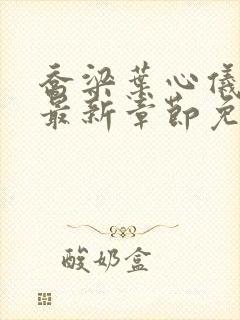 乔梁葉心儀
最新章節免
酸奶盒